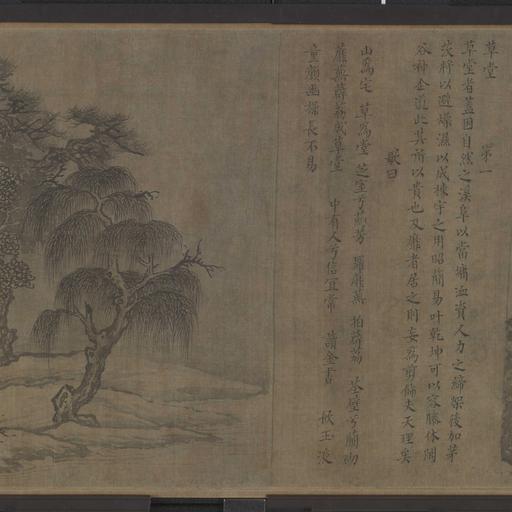 草堂 第一
草堂者蓋因自然之溪阜以當墉洫資人力之締架後加茅
茨將以避燥濕以成棟宇之用昭簡易叶乾坤可以容膝休閒
谷神全道此其所以貴也又靡者居之則妄為剪飾失天理矣
歌曰
山為宅 草為堂 芝室兮葯芳 羅蘼蕪 拍薜荔 荃壁兮蘭砌
蘼蕪薜荔成草堂 中有人兮信宜常 讀金書 飲玉液
童顏幽操長不易